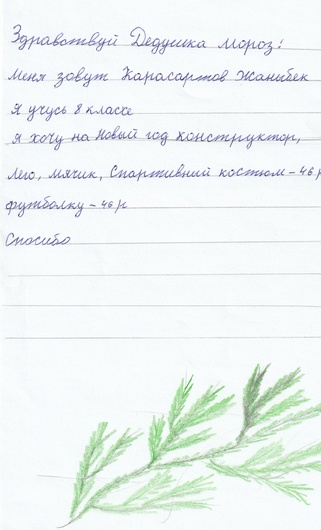 Здравствуй Дедушка мороз!
Меня зовут Карасартов Жаныбек
Я учусь 8 классе
Я хочу на Новый год конструктор,
лего, мячик, Спартивний костюм - 46 р
футболку - 46 р
Спосибо